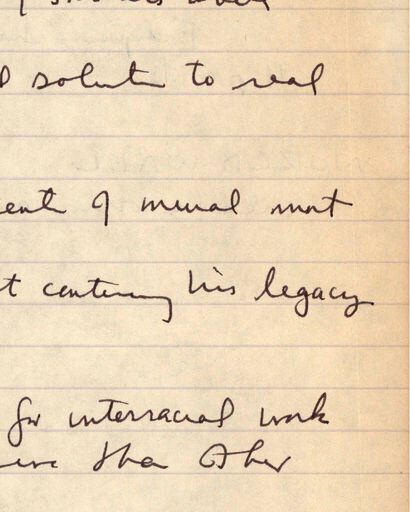 solution to real
of mural most
continuing his legacy
for interracial work
than other